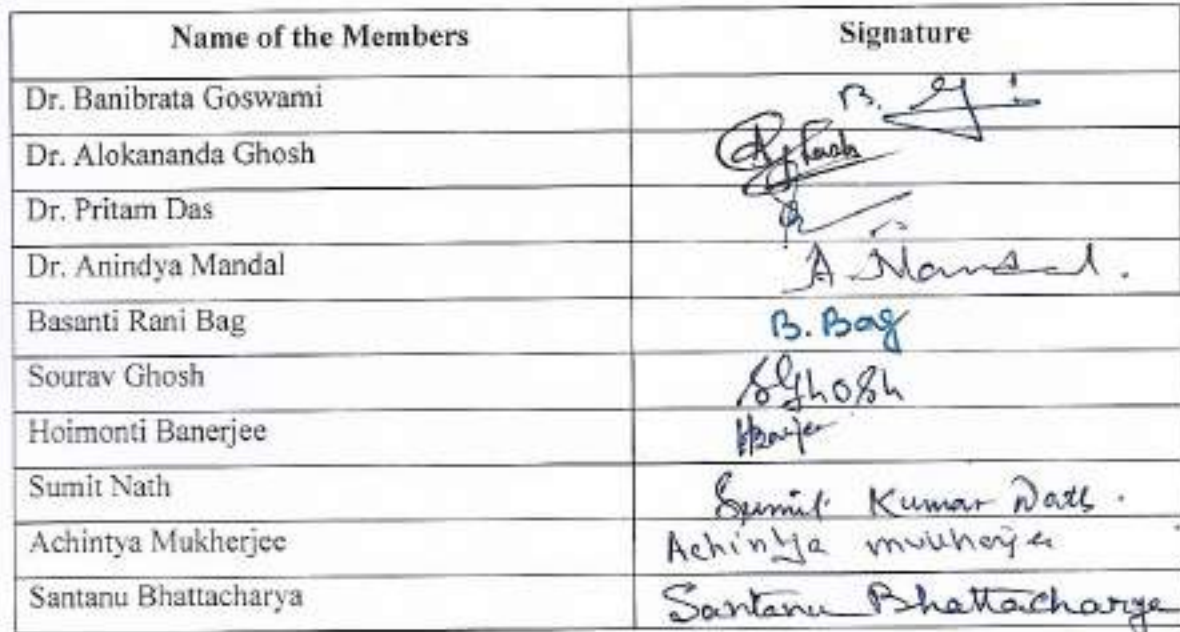 Name of the Members Signature
Dr. Banibrata Goswami B.
Dr. Alokananda Ghosh
Dr. Pritam Das
Dr. Anindya Mandal A. Mandal.
Basanti Rani Bag B. Bag
Sourav Ghosh SGhosh
Hoimonti Banerjee HBanerjee
Sumit Nath Sumit Kumar Nath.
Achintya Mukherjee Achintya mukherjee
Santanu Bhattacharya Santanu Bhattacharya